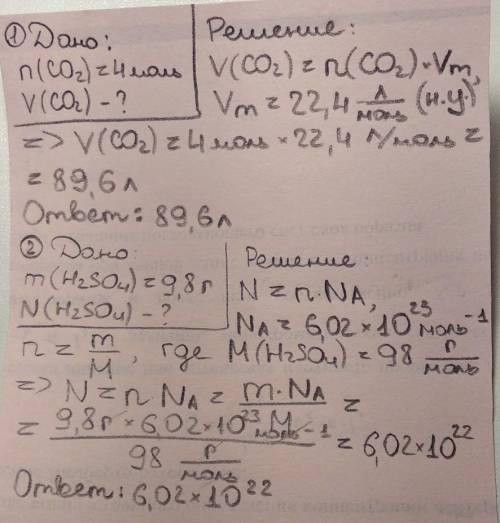 ① Дано:
n(CO₂) = 4 моль
V(CO₂) - ?
Решение:
V(CO₂) = n(CO₂) · Vm,
Vm = 22,4 л/моль (н.у.)
=> V(CO₂) = 4 моль × 22,4 л/моль =
= 89,6 л
Ответ: 89,6 л
② Дано:
m(H₂SO₄) = 9,8 г
N(H₂SO₄) - ?
Решение:
N = n · NA,
NA = 6,02 × 10²³ моль⁻¹
n = m/M, где M(H₂SO₄) = 98 г/моль
=> N = n · NA = m · NA / M =
= 9,8 г × 6,02 × 10²³ моль⁻¹ / 98 г/моль = 6,02 × 10²²
Ответ: 6,02 × 10²²